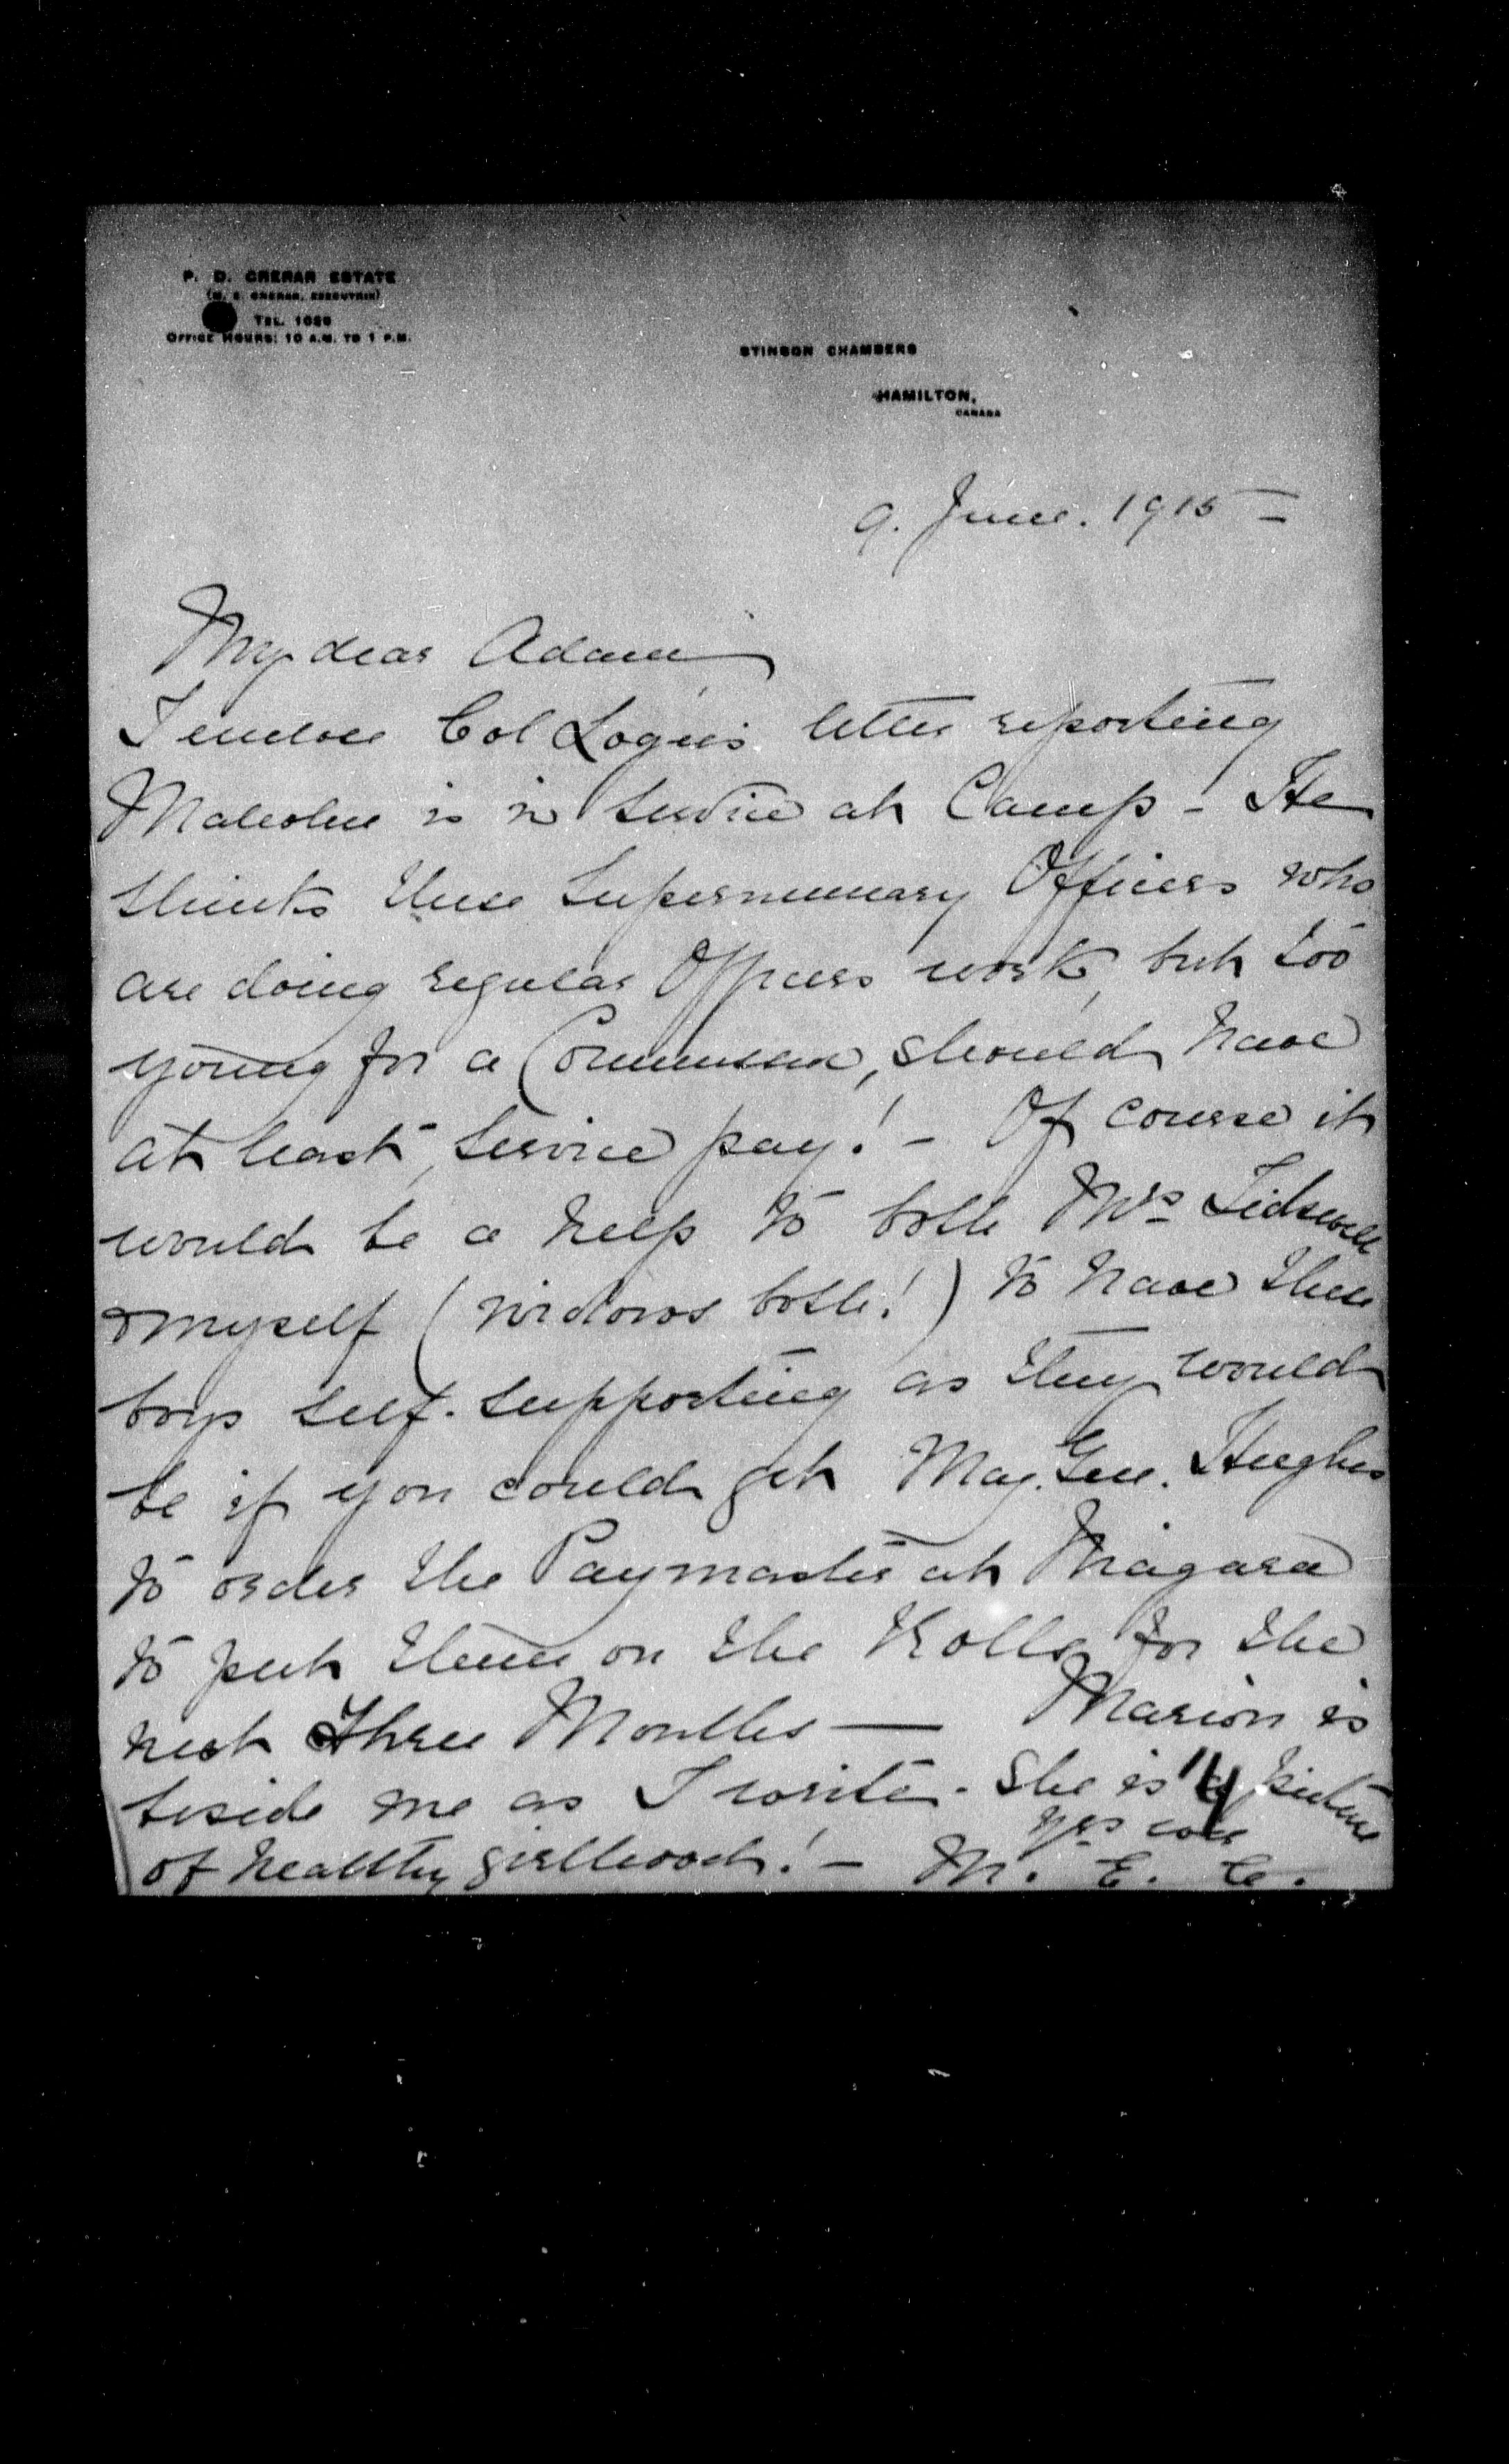 P. D. CRERAR ESTATE
(M. E. CRERAR, EXECUTRIX)
TEL. 1020
OFFICE HOURS: 10 A.M. TO 1 P.M.
STINSON CHAMBERS
HAMILTON,
CANADA
9. June. 1915
My dear Adam
I enclose Col Logie's letter reporting
Malcolm is in service at Camp - He
thinks these Supernumary Officers who
are doing regular Officers work, but too
young for a Commission, should have
at least, service pay! - Of course it
would be a help to both Mrs Tidswell
& myself (widows both!) to have these
boys self-supporting as they would
be if you could get Maj. Gen. Hughes
to order the Paymaster at Niagara
to put them on the Rolls for the
next Three Months — Marion is
beside me as I write. She is a picture
of healthy girlhood! - yrs
M. E. C.